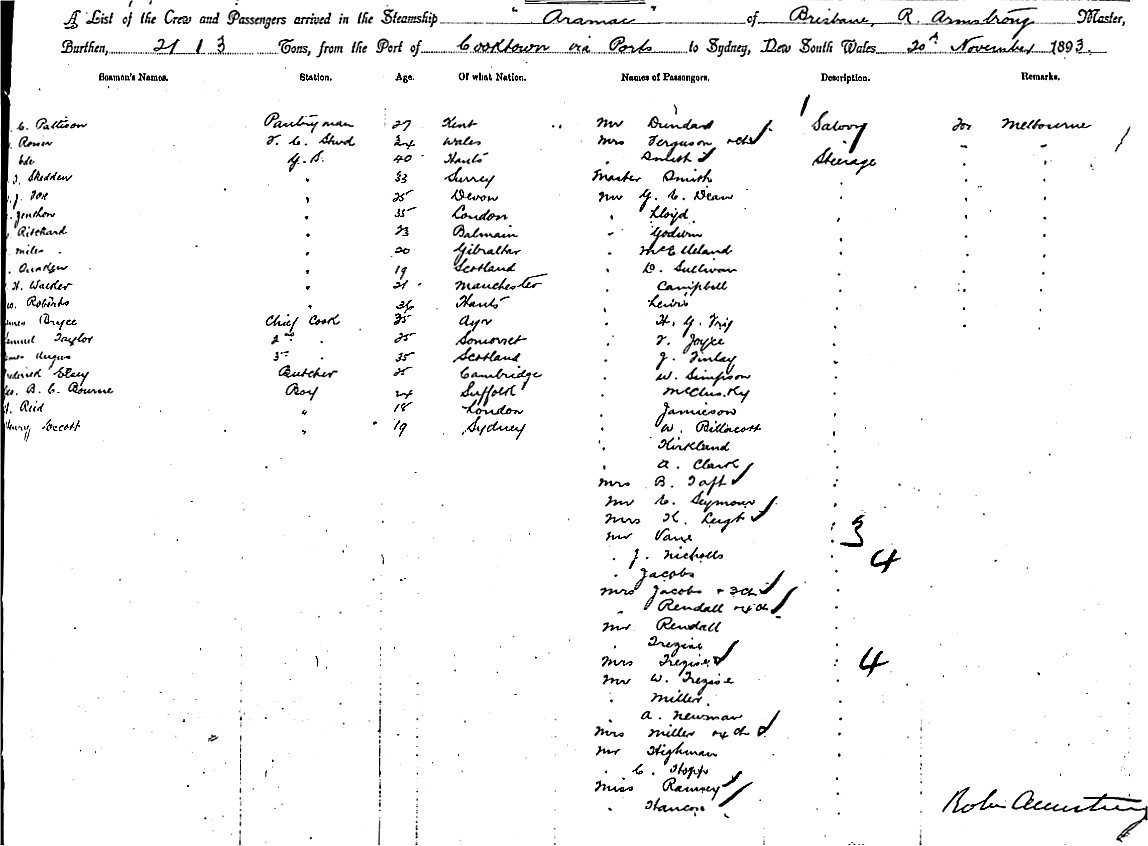 A List of the Crew and Passengers arrived in the Steamship "Aramac" of Brisbane, R. Armstrong Master,
Burthen, 2113 Tons, from the Port of Cooktown via Ports to Sydney, New South Wales 20th November 1893.
Seamen's Names. Station. Age. Of what Nation. Names of Passengers. Description. Remarks.
C. Pattison Pantryman 27 Kent Mr Dundas Saloon for Melbourne
T. C. Stwd 24 Wales Mrs Ferguson
G. S. 40 Hants Smith Steerage
Skedden " 33 Surrey Master Smith
J. Fox " 25 Devon Mr G. C. Dean
" 35 London " Lloyd
Pritchard " 23 Balmain " Godwin
Miles " 20 Gibraltar " McClelland
" 19 Scotland " D. Sullivan
H. Walder " 21 Manchester " Campbell
W. Roberts " 36 Hants " Lewis
Bryce Chief Cook 35 Ayr " H. G.
Taylor 2nd " 25 Somerset " T. Joyce
Angus 3rd " 35 Scotland " J. Finlay
Butcher 25 Cambridge " W. Simpson
B. C. Bourne Boy 24 Suffolk " McClusky
Reid " 18 London " Jamieson
" 19 Sydney " W. Billacott
" Kirkland
" A. Clark
Mrs B. Taft
Mr C. Seymour
Mrs K. Leigh
Mr Vane 3
" J. Nicholls 4
" Jacobs
Mrs Jacobs + 3 ch
" Rendall + 4 ch
Mr Rendall
" Tregise
Mrs Tregise 4
Mr W. Tregise
" Miller
" A. Newman
Mrs Miller + 4 ch
Mr Highman
" C. Hopp
Miss Ramsey
" Hancox